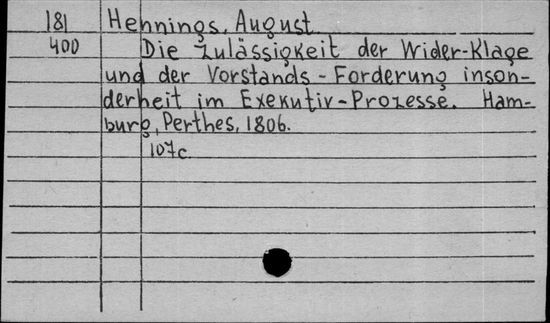 181 Hennings, August
400 Die Zulässigkeit der Wider-Klage
und der Vorstands-Forderung inson-
derheit im Exekutiv-Prozesse. Ham-
burg, Perthes, 1806.
107c.